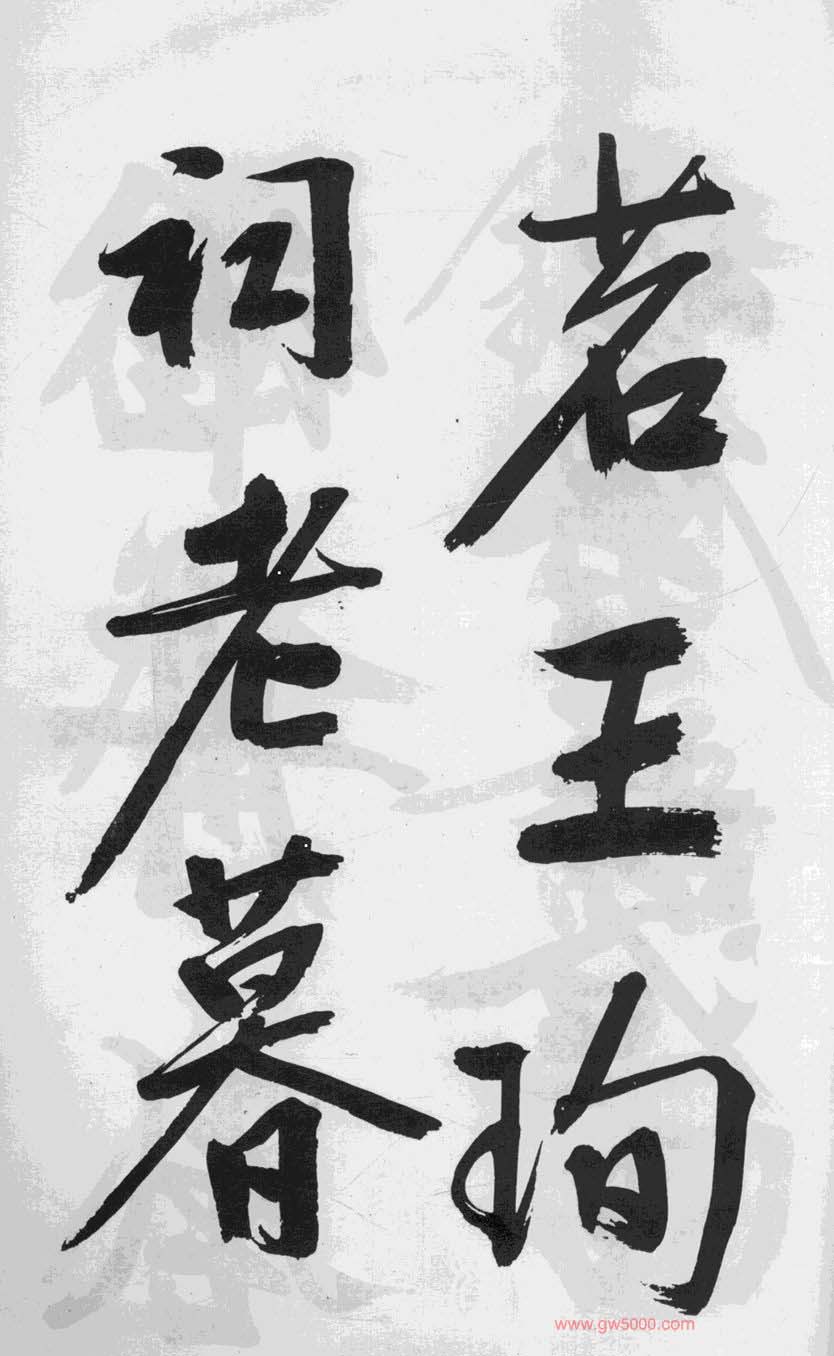 若王珣
祠老暮
www.gw5000.com